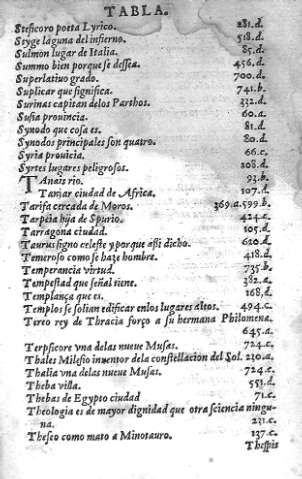 TABLA.
Steficoro poeta Lyrico. 281.d.
Styge laguna del infierno. 518.d.
Sulmon lugar de Italia. 85.d.
Summo bien porque se dessea. 456.d.
Superlatiuo grado. 700.d.
Suplicar que significa. 741.b.
Surinas capitan delos Parthos. 332.d.
Susia prouincia. 60.a.
Synodo que cosa es. 81.d.
Synodos principales son quatro. 80.d.
Syria prouicia. 66.c.
Syrtes lugares peligrosos. 208.d.
TAnais rio. 93.b.
Tanjar ciudad de Africa. 107.d.
Tarifa cercada de Moros. 369.a.599.b.
Tarpeia hija de Spurio. 424.c.
Tarragona ciudad. 105.d.
Taurus signo celeste y porque assi dicho. 620.d.
Temeroso como se haze hombre. 418.d.
Temperancia virtud. 735.b.
Tempestad que señal tiene. 382.a.
Templança que es. 168.d.
Templos se solian edificar enlos lugares altos. 494.c.
Tereo rey de Thracia forço a su hermana Philomena.
645.a.
Terpsicore vna delas nueue Musas. 724.c.
Thales Milesio inuentor dela constellacion del Sol. 230.a.
Thalia vna delas nueue Musas. 724.c.
Theba villa. 551.d.
Thebas de Egypto ciudad 71.c.
Theologia es de mayor dignidad que otra sciencia ningu-
na. 231.c.
Theseo como mato a Minotauro. 137.c.
Thespis